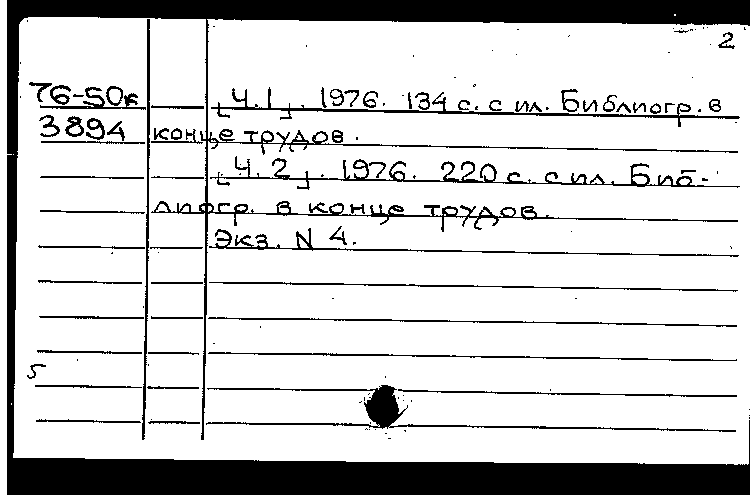 2
76-50к [Ч.1]. 1976. 134 с. с ил. Библиогр. в
3894 конце трудов.
[Ч. 2]. 1976. 220 с. с ил. Биб-
лиогр. в конце трудов.
Экз. N 4.
5